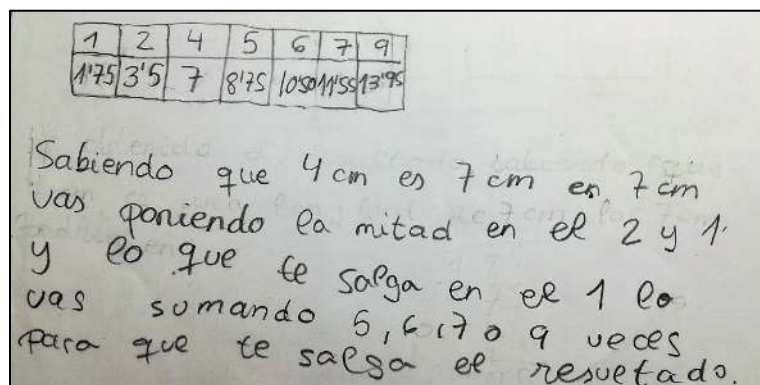 1 2 4 5 6 7 9
1'75 3'5 7 8'75 10'50 11'55 13'95
Sabiendo que 4 cm es 7 cm en 7 cm
vas poniendo la mitad en el 2 y 1.
y lo que te salga en el 1 lo
vas sumando 5, 6, 7 o 9 veces
para que te salga el resultado.